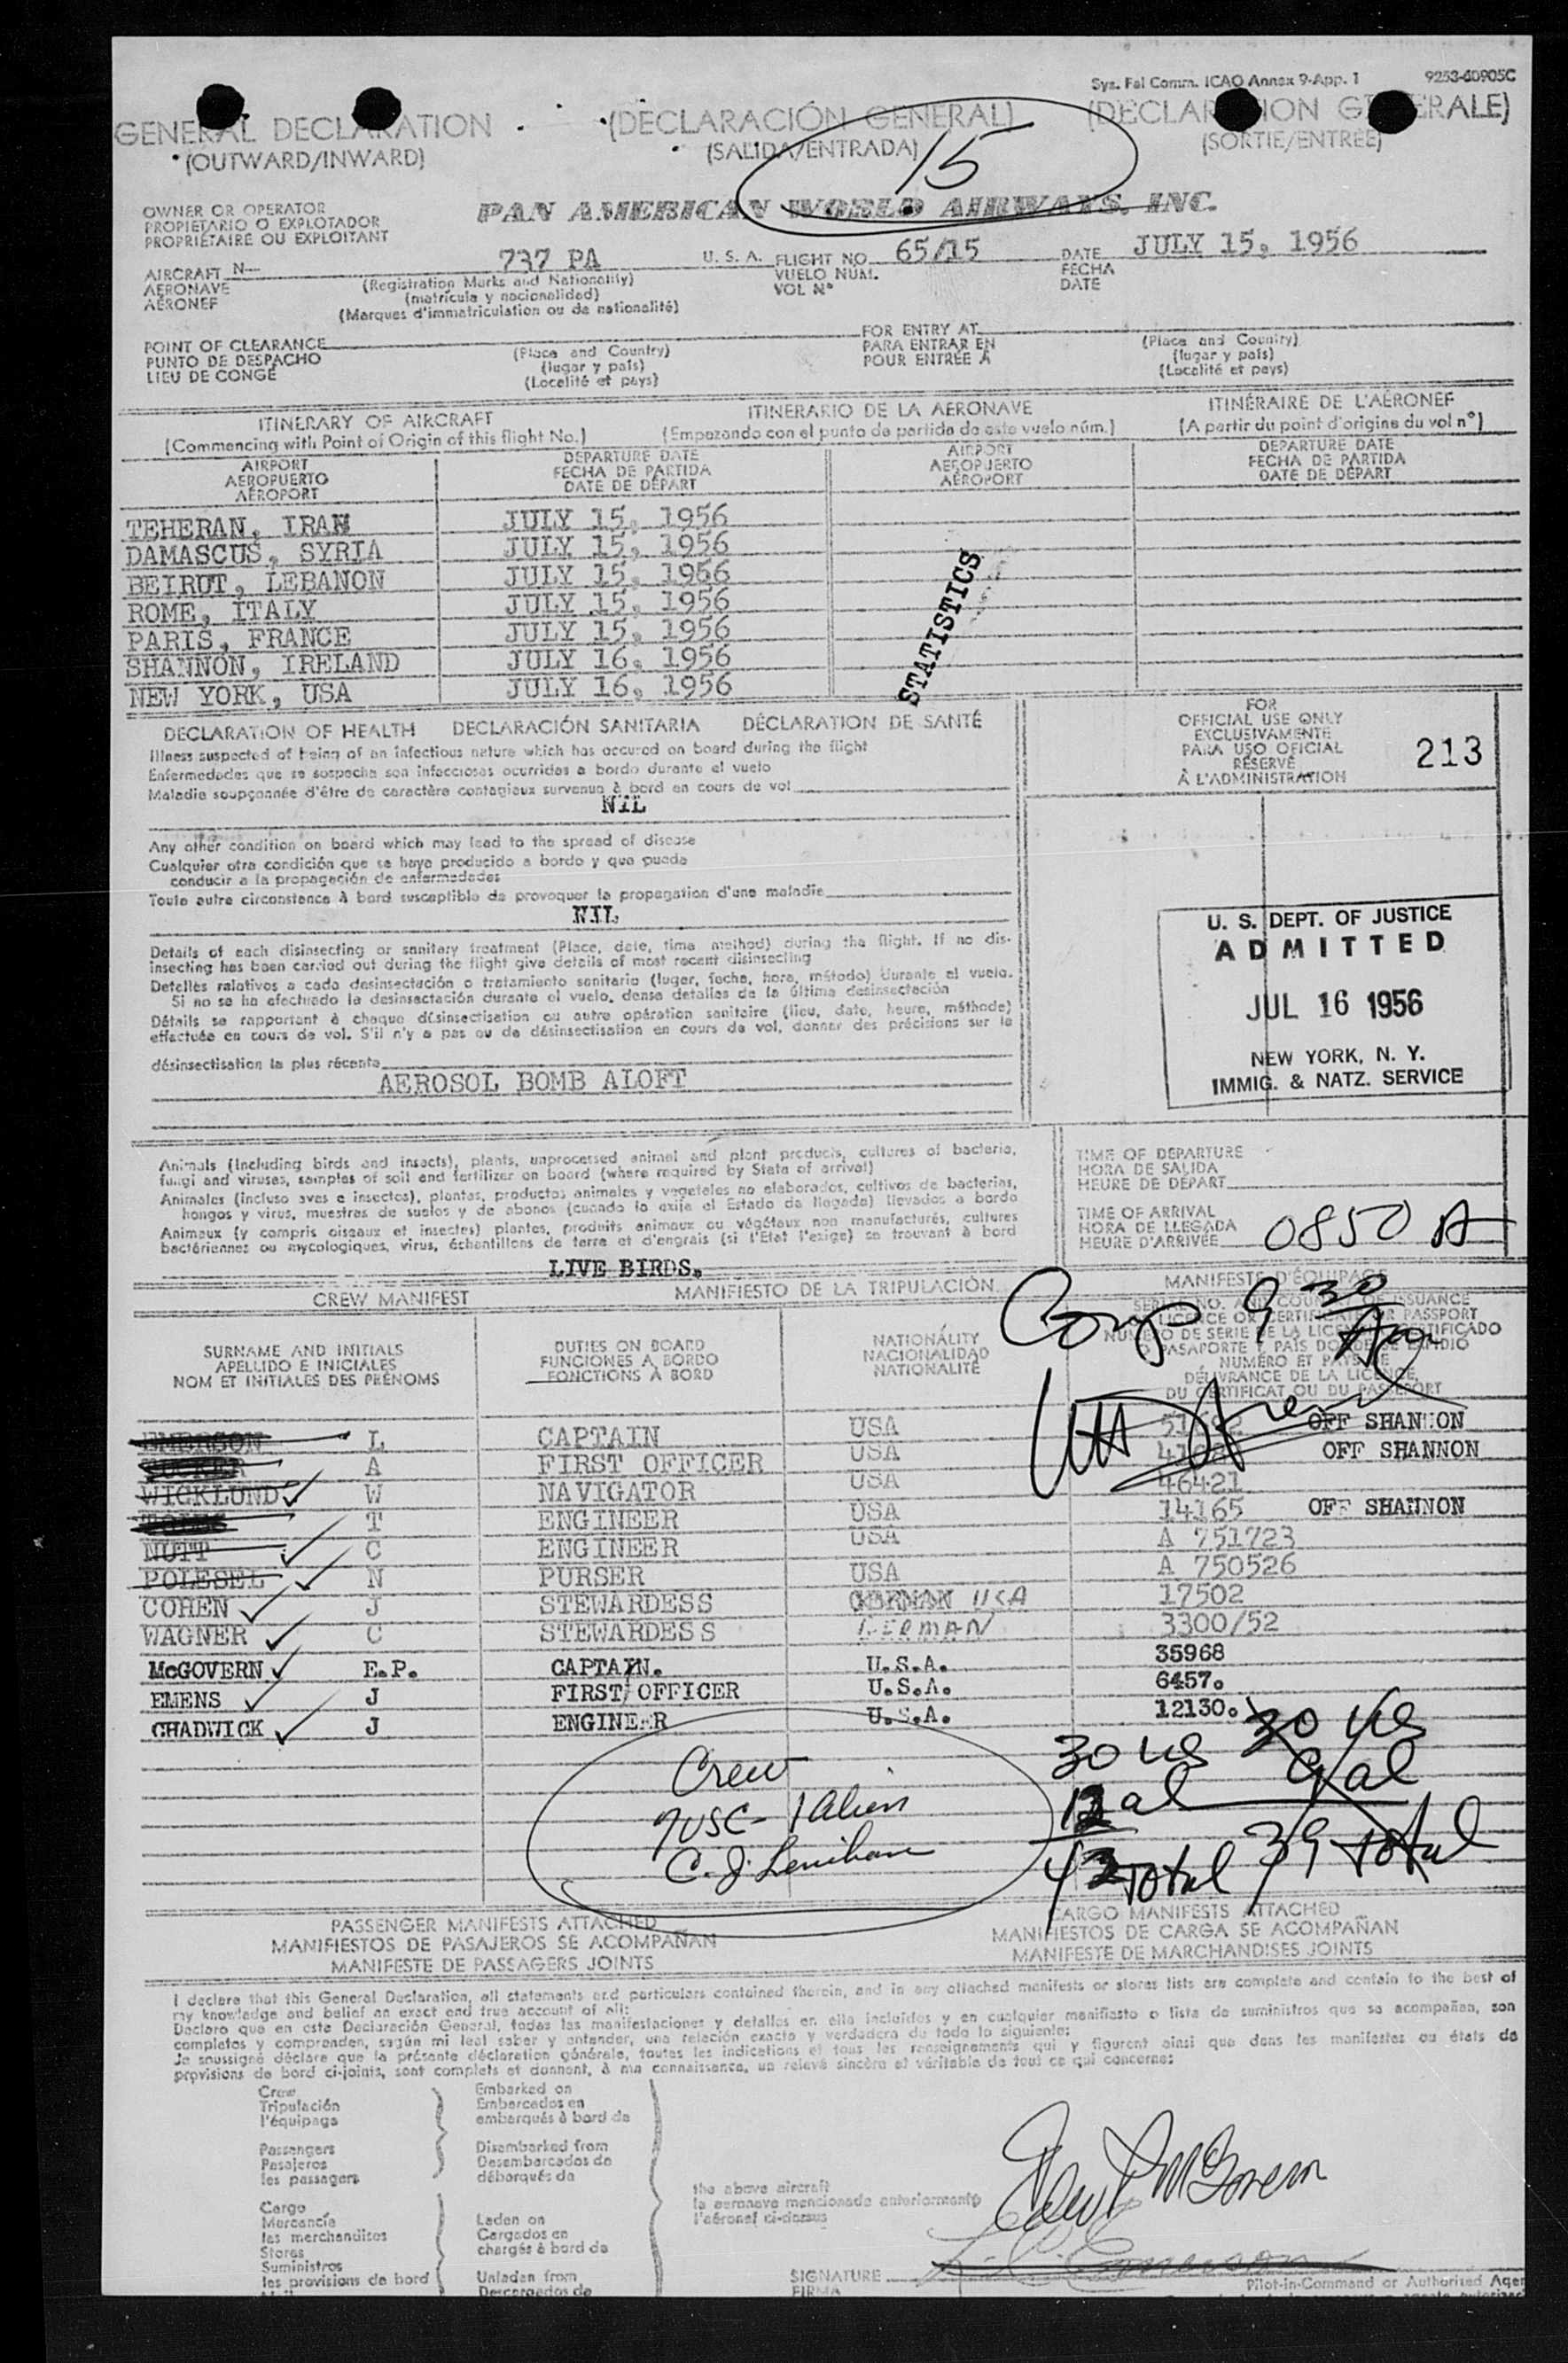 Sys. Fal Comm. ICAO Annex 9-App. 1 9253-60905C
GENERAL DECLARATION (DECLARACIÓN GENERAL) (DECLARATION GENERALE)
(OUTWARD/INWARD) (SALIDA/ENTRADA) (SORTIE/ENTRÉE)
15
OWNER OR OPERATOR
PROPIETARIO O EXPLOTADOR
PROPRIÉTAIRE OU EXPLOITANT
PAN AMERICAN WORLD AIRWAYS, INC.
AIRCRAFT N— 737 PA U. S. A. FLIGHT NO. 65/15 DATE JULY 15, 1956
AERONAVE (Registration Marks and Nationality) VUELO NÚM. FECHA
AÉRONEF (matrícula y nacionalidad) VOL Nº DATE
(Marques d'immatriculation ou de nationalité)
POINT OF CLEARANCE (Place and Country) FOR ENTRY AT (Place and Country)
PUNTO DE DESPACHO (lugar y país) PARA ENTRAR EN (lugar y país)
LIEU DE CONGÉ (Localité et pays) POUR ENTRÉE À (Localité et pays)
ITINERARY OF AIRCRAFT ITINERARIO DE LA AERONAVE ITINÉRAIRE DE L'AÉRONEF
(Commencing with Point of Origin of this flight No.) (Empezando con el punto de partida de este vuelo núm.) (A partir du point d'origine du vol nº)
AIRPORT DEPARTURE DATE AIRPORT DEPARTURE DATE
AEROPUERTO FECHA DE PARTIDA AEROPUERTO FECHA DE PARTIDA
AÉROPORT DATE DE DÉPART AÉROPORT DATE DE DÉPART
TEHERAN, IRAN JULY 15, 1956
DAMASCUS, SYRIA JULY 15, 1956
BEIRUT, LEBANON JULY 15, 1956
ROME, ITALY JULY 15, 1956
PARIS, FRANCE JULY 15, 1956
SHANNON, IRELAND JULY 16, 1956
NEW YORK, USA JULY 16, 1956
STATISTICS
DECLARATION OF HEALTH DECLARACIÓN SANITARIA DÉCLARATION DE SANTÉ
Illness suspected of being of an infectious nature which has occured on board during the flight
Enfermedades que se sospecha son infecciosas ocurridas a bordo durante el vuelo
Maladie soupçonnée d'être de caractère contagieux survenue à bord en cours de vol
NIL
Any other condition on board which may lead to the spread of disease
Cualquier otra condición que se haya producido a bordo y que pueda
conducir a la propagación de enfermedades
Toute autre circonstance à bord susceptible de provoquer la propagation d'une maladie
NIL
Details of each disinsecting or sanitary treatment (Place, date, time method) during the flight. If no dis-
insecting has been carried out during the flight give details of most recent disinsecting
Detalles relativos a cada desinsectación o tratamiento sanitario (lugar, fecha, hora, método) durante el vuelo.
Si no se ha efectuado la desinsectación durante el vuelo, dense detalles de la última desinsectación
Détails se rapportant à chaque désinsectisation ou autre opération sanitaire (lieu, date, heure, méthode)
effectuée en cours de vol. S'il n'y a pas eu de désinsectisation en cours de vol, donner des précisions sur la
désinsectisation la plus récente
AEROSOL BOMB ALOFT
FOR
OFFICIAL USE ONLY
EXCLUSIVAMENTE
PARA USO OFICIAL
RÉSERVÉ
À L'ADMINISTRATION
213
U. S. DEPT. OF JUSTICE
ADMITTED
JUL 16 1956
NEW YORK, N. Y.
IMMIG. & NATZ. SERVICE
Animals (Including birds and insects), plants, unprocessed animal and plant products, cultures of bacteria,
fungi and viruses, samples of soil and fertilizer on board (where required by State of arrival)
Animales (incluso aves e insectos), plantas, productos animales y vegetales no elaborados, cultivos de bacterias,
hongos y virus, muestras de suelos y de abonos (cuando lo exija el Estado de llegada) llevados a bordo
Animaux (y compris oiseaux et insectes) plantes, produits animaux ou végétaux non manufacturés, cultures
bactériennes ou mycologiques, virus, échantillons de terre et d'engrais (si l'État l'exige) se trouvant à bord
LIVE BIRDS.
TIME OF DEPARTURE
HORA DE SALIDA
HEURE DE DÉPART
TIME OF ARRIVAL
HORA DE LLEGADA
HEURE D'ARRIVÉE
0850 A
CREW MANIFEST MANIFIESTO DE LA TRIPULACIÓN MANIFESTE D'ÉQUIPAGE
Comp 9 30
SURNAME AND INITIALS DUTIES ON BOARD NATIONALITY
APELLIDO E INICIALES FUNCIONES A BORDO NACIONALIDAD
NOM ET INITIALES DES PRÉNOMS FONCTIONS À BORD NATIONALITÉ
NUMÉRO ET PAYS DE
DÉLIVRANCE DE LA LICENCE,
DU CERTIFICAT OU DU PASSEPORT
EMERSON L CAPTAIN USA OFF SHANNON
A FIRST OFFICER USA OFF SHANNON
WICKLUND W NAVIGATOR USA 46421
T ENGINEER USA 14165 OFF SHANNON
NUTT C ENGINEER USA A 751723
POLESEL N PURSER USA A 750526
COHEN J STEWARDESS GERMAN USA 17502
WAGNER C STEWARDESS GERMAN 3300/52
McGOVERN E.P. CAPTAIN. U.S.A. 35968
EMENS J FIRST OFFICER U.S.A. 6457.
CHADWICK J ENGINEER U.S.A. 12130.
Crew
7USC - 1 Alien
C. J. Lenihan
30 us 30 us
12 al 9 al
42 Total 39 Total
PASSENGER MANIFESTS ATTACHED CARGO MANIFESTS ATTACHED
MANIFIESTOS DE PASAJEROS SE ACOMPAÑAN MANIFIESTOS DE CARGA SE ACOMPAÑAN
MANIFESTE DE PASSAGERS JOINTS MANIFESTE DE MARCHANDISES JOINTS
I declare that this General Declaration, all statements and particulars contained therein, and in any attached manifests or stores lists are complete and contain to the best of
my knowledge and belief an exact and true account of all:
Declaro que en esta Declaración General, todas las manifestaciones y detalles en ella incluídos y en cualquier manifiesto o lista de suministros que se acompañan, son
completos y comprenden, según mi leal saber y entender, una relación exacta y verdadera de todo lo siguiente:
Je soussigné déclare que la présente déclaration générale, toutes les indications et tous les renseignements qui y figurent ainsi que dans les manifestes ou états de
provisions de bord ci-joints, sont complets et donnent, à ma connaissance, un relevé sincère et véritable de tout ce qui concerne:
Crew Embarked on
Tripulación Embarcados en
l'équipage embarqués à bord de
Passengers Disembarked from
Pasajeros Desembarcados de
les passagers débarqués de
Cargo
Mercancía Laden on
les merchandises Cargados en
Stores chargés à bord de
Suministros
les provisions de bord Unladen from
Descargados de
the above aircraft
la aeronave mencionada anteriormente
l'aéronef ci-dessus
Edw P McGovern
L. C. Emerson
SIGNATURE
FIRMA
Pilot-in-Command or Authorized Agen